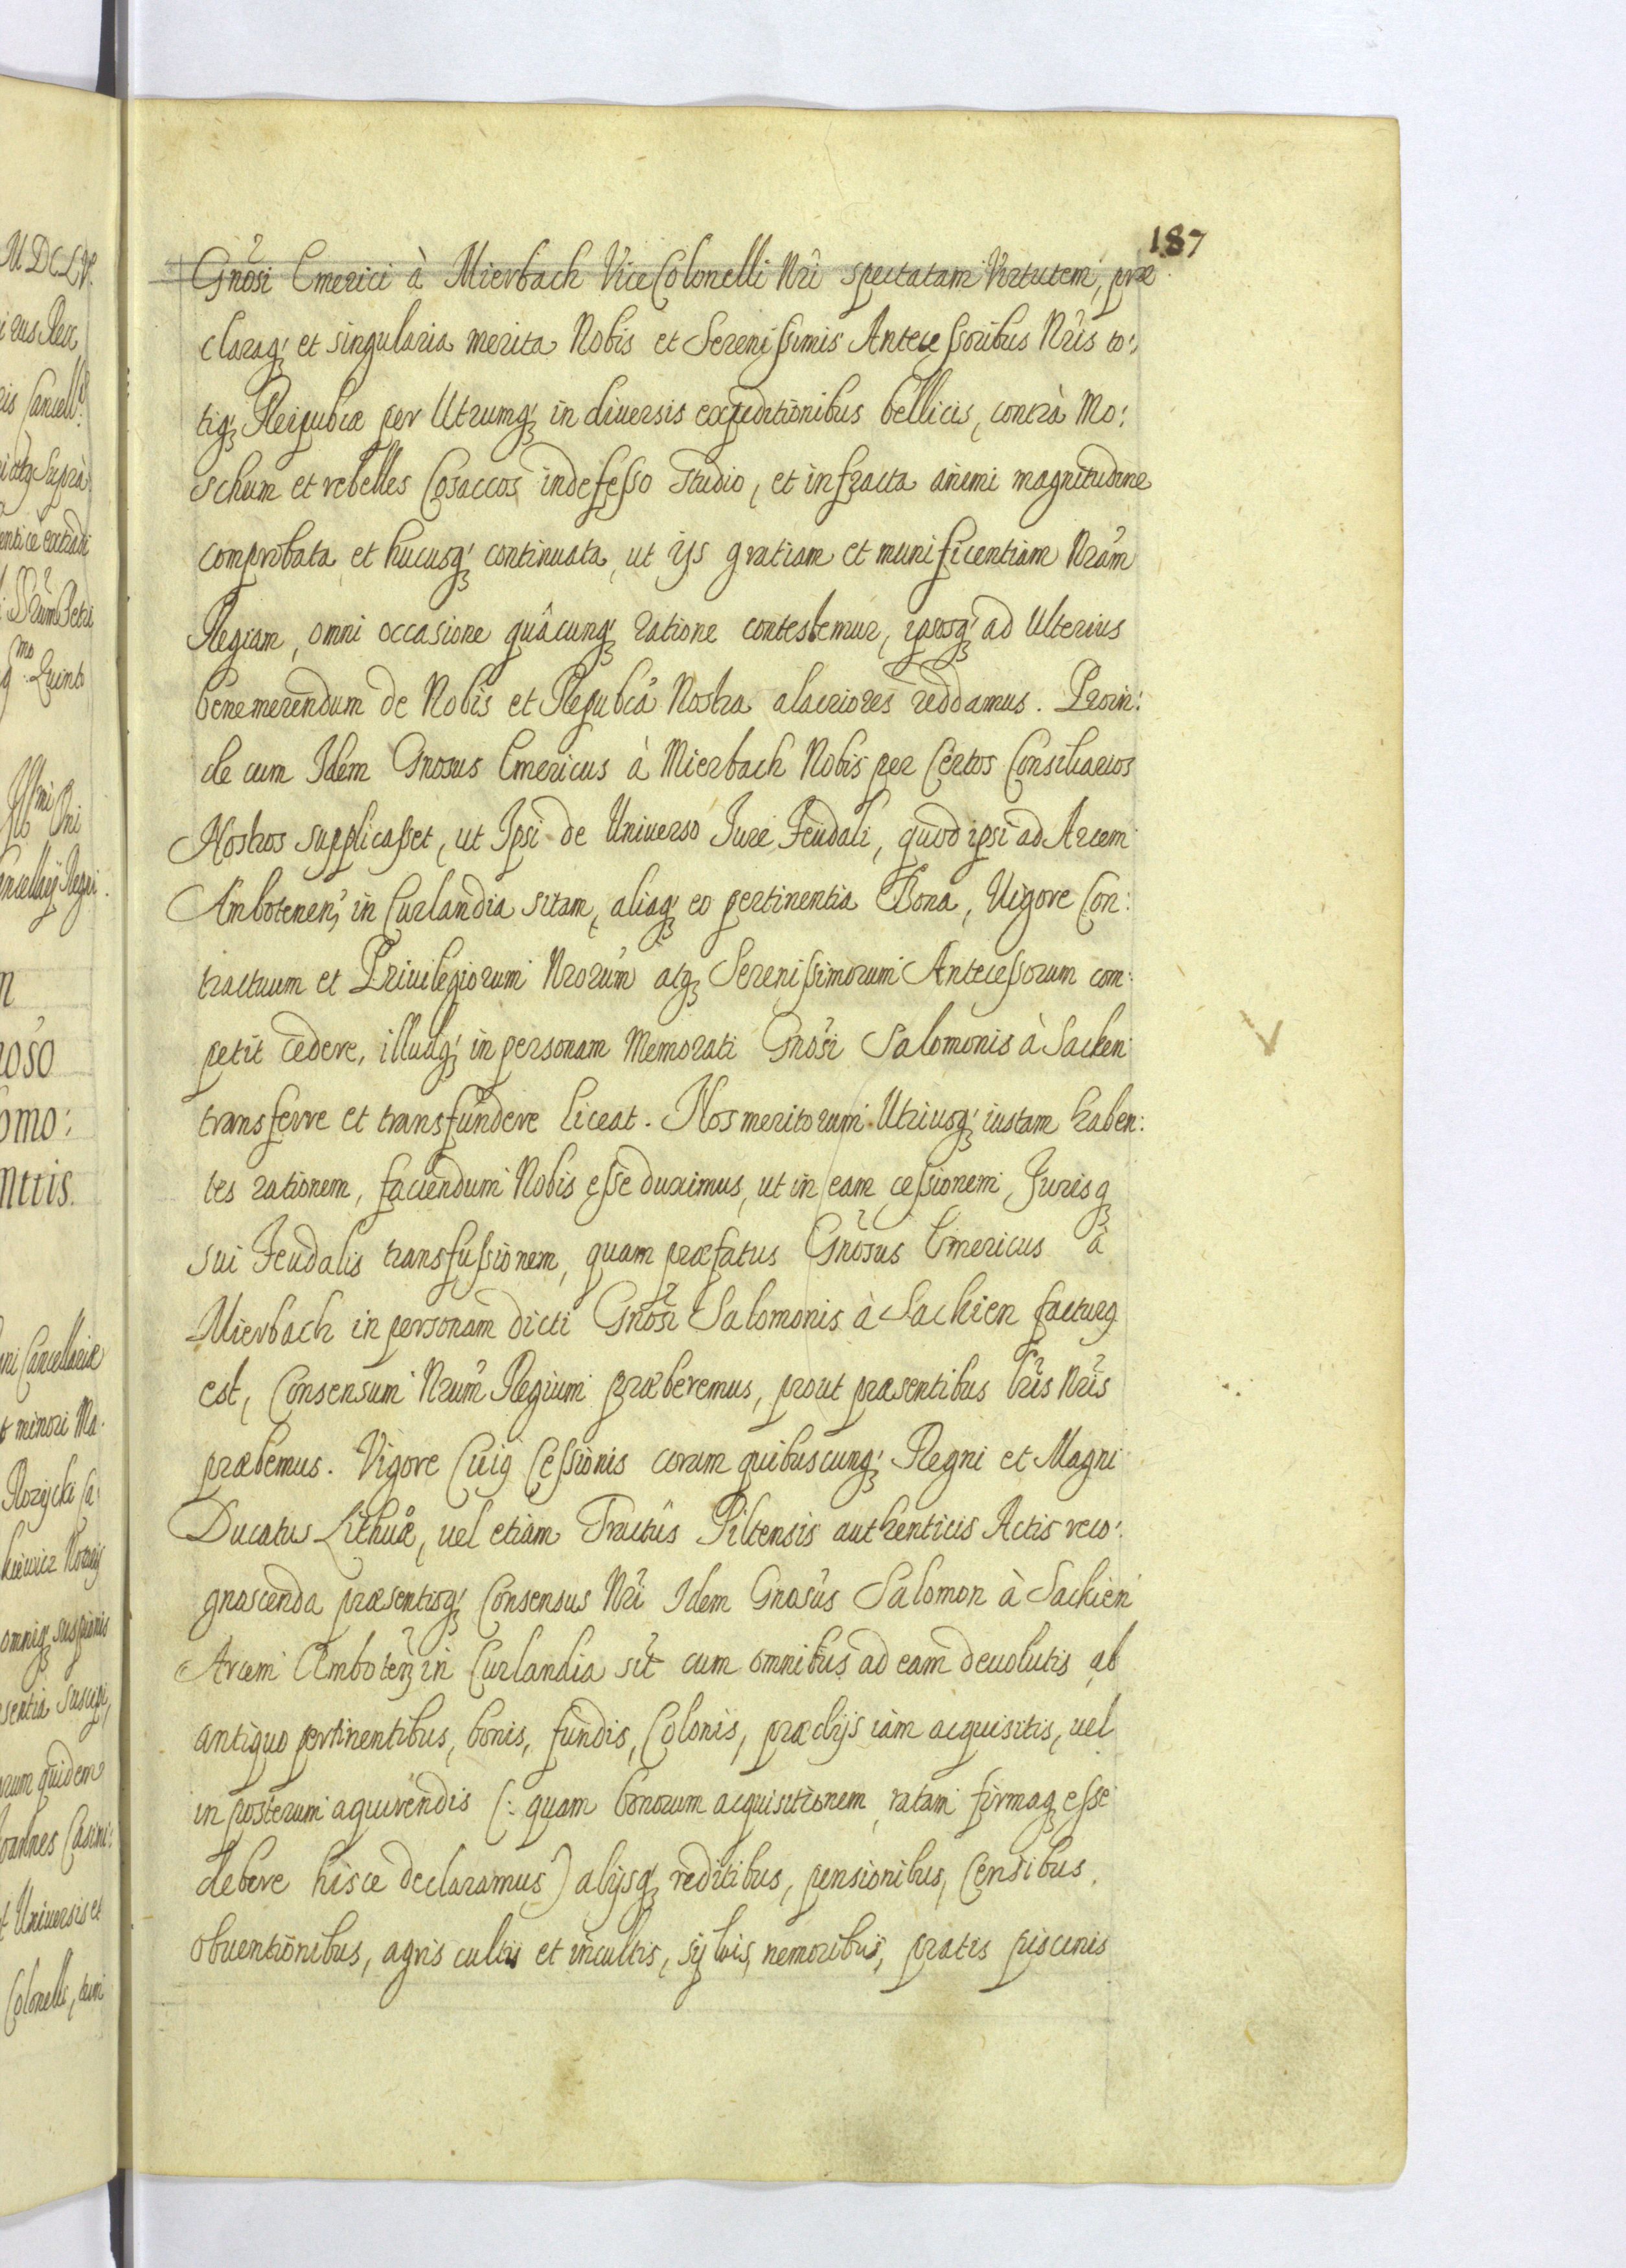 187
Gnosi Emerici à Mierbach Vice Colonelli Nri spectatam Virtutem, præ
claraq; et singularia merita Nobis et Serenissimis Antecessoribus Nris to:
tiq; Reipubcæ per Utrumq; in diuersis expeditionibus bellicis, contrà Mo:
schum et rebelles Cosaccos indefesso studio, et infracta animi magnitudine
comprobata et hucusq; continuata, ut ijs gratiam et munificentiam Nram
Regiam, omni occasione quâcunq; ratione contestemur, ipsosq; ad Ulterius
benemerendum de Nobis et Repubca Nostra alacriores reddamus. Proin:
de cum Idem Gnosus Emericus à Mierbach Nobis per Certos Consiliarios
Nostros supplicasset, ut Ipsi de Uniuerso Iure Feudali, quod ipsi ad Arcem
Ambotenen; in Curlandia sitam, aliaq; eo pertinentia Bona, Uigore Con:
tractuum et Priuilegiorum Nrorum atq; Serenissimorum Antecessorum com:
petit cedere, illudq; in personam Memorati Gnosi Salomonis à Sacken
transferre et transfundere liceat. Nos meritorum Utriusq; iustam haben:
tes rationem, faciendum Nobis esse duximus, ut in eam cessionem, Jurisq;
sui Feudalis transfussionem, quam præfatus Gnosus Emericus à
Mierbach in personam dicti Gnosi Salomonis à Sackien facturq
est, Consensum Nrum Regium præberemus, prout præsentibus Lris Nris
præbemus. Vigore Cuiq Cessionis coram quibuscunq; Regni et Magni
Ducatus Lithuæ, uel etiam Tractus Piltensis authenticis Actis reco:
gnoscenda præsentisq; Consensus Nri Idem Gnosus Salomon à Sackien
Arcem Amboten; in Curlandia sit cum omnibus ad eam deuolutis ab
antiquo pertinentibus, bonis, fundis, Colonis, prædijs iam acquisitis, uel
in posterum aquirendis (: quam bonorum acquisitionem, ratam firmaq; esse
debere hisce declaramus) alijsq; reditibus, pensionibus, Censibus,
obuentionibus, agris cultis et incultis, syluis, nemoribus, pratis piscinis